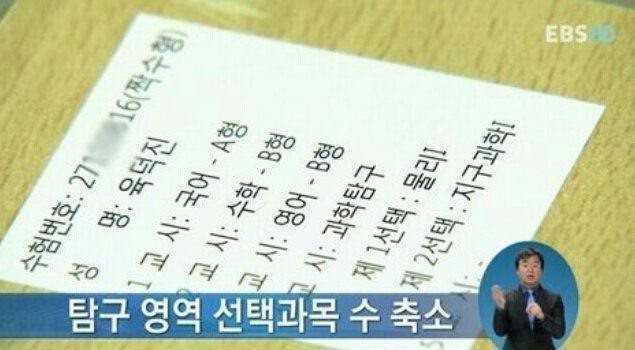 EBS HD
수험번호: 27 16(짝수형)
성 명: 육덕진
1 교 시: 국어 - A형
교 시: 수학 - B형
교 시: 영어 - B형
교 시: 과학탐구
제 1선택: 물리I
제 2선택: 지구과학I
탐구 영역 선택과목 수 축소